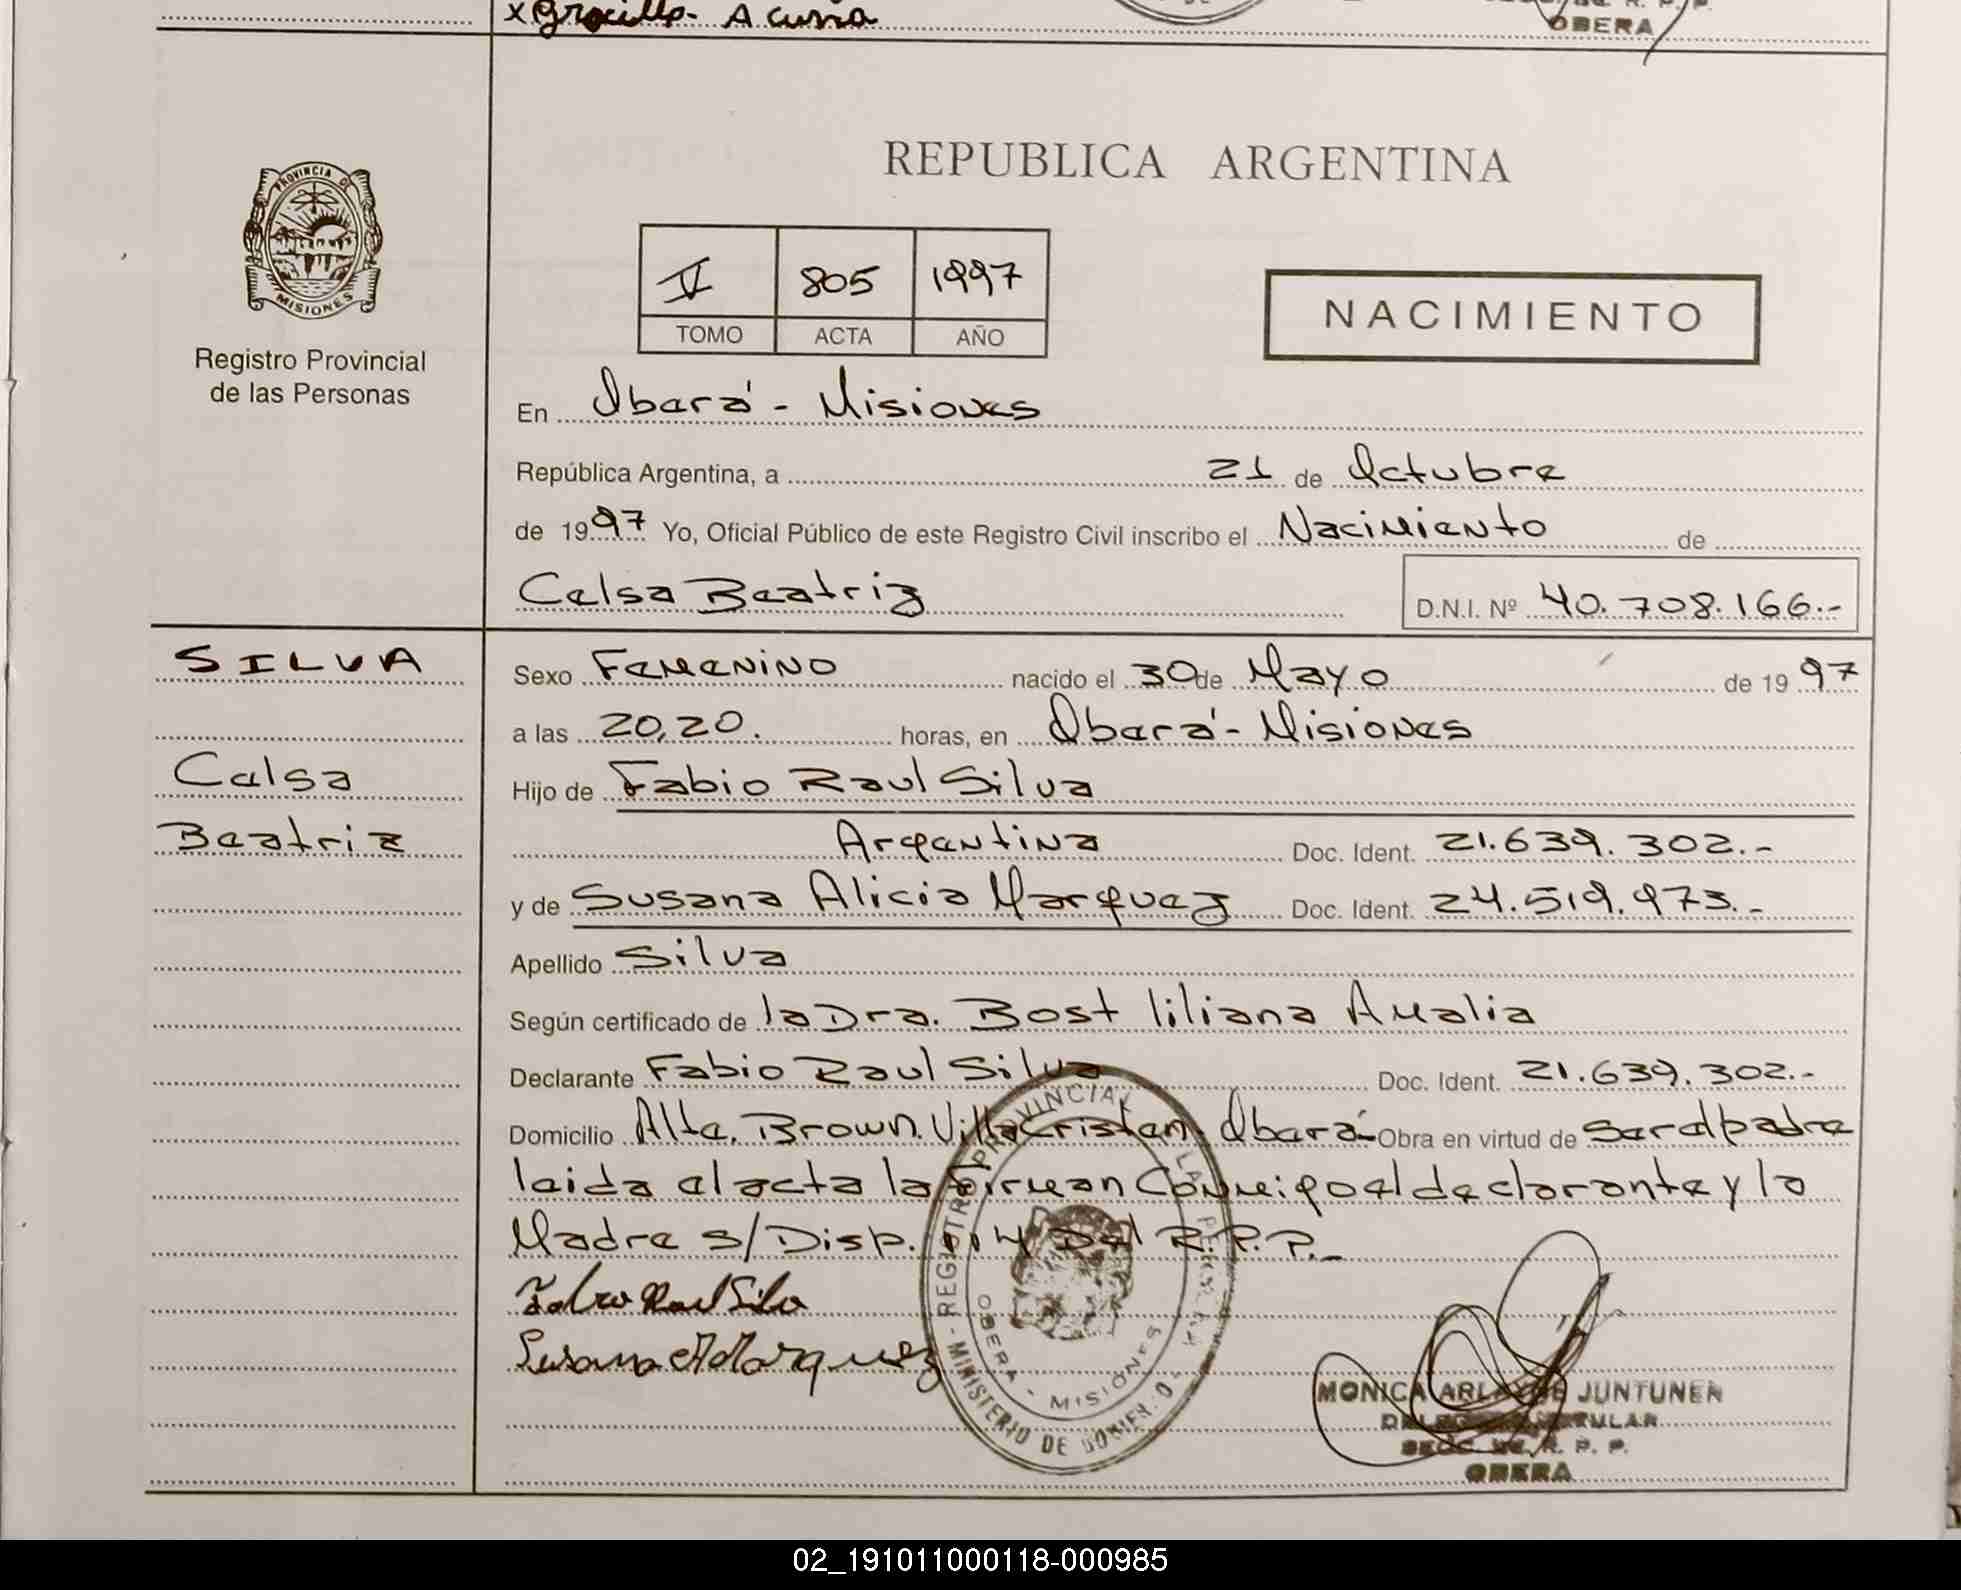 x Graciela A cuña
OBERA
PROVINCIA DE
MISIONES
Registro Provincial
de las Personas
REPUBLICA ARGENTINA
IV 805 1997
TOMO ACTA AÑO
NACIMIENTO
En Oberá - Misiones
República Argentina, a 21 de Octubre
de 1997 Yo, Oficial Público de este Registro Civil inscribo el Nacimiento de
Celsa Beatriz D.N.I. Nº 40.708.166.-
SILVA
Celsa
Beatriz
Sexo Femenino nacido el 30 de Mayo de 1997
a las 20,20. horas, en Oberá - Misiones
Hijo de Fabio Raul Silva
Argentina Doc. Ident. 21.639.302.-
y de Susana Alicia Marquez Doc. Ident. 24.519.973.-
Apellido Silva
Según certificado de la Dra. Bost liliana Amalia
Declarante Fabio Raul Silva Doc. Ident. 21.639.302.-
Domicilio Alte. Brown. Villa Cristen. Oberá- Obra en virtud de Ser el padre
leida el acta la firman Conmigo el declarante y la
Madre s/ Disp. 114 Del R.P.P.-
Fabio Raul Silva
Susana A Marquez
REGISTRO PROVINCIAL
MINISTERIO DE GOBIERNO
OBERA - MISIONES
MONICA JUNTUNEN
R. P. P.
OBERA
02_191011000118-000985